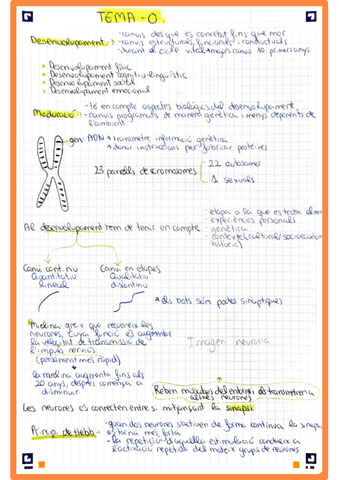 TEMA - 0
Desenvolupament
- canvis des que es concebit fins que mor
- canvis estructurals, funcionals i conductuals
- durant el cicle vital → majors canvis 10 primers anys
• Desenvolupament físic
• Desenvolupament cognitiu-lingüístic
• Desenvolupament social
• Desenvolupament emocional
Maduració
- té en compte aspectes biològics del desenvolupament
- canvis programats de manera genètica i menys depenents de
l'ambient
gen: ADN → transmetre informació genètica
→ donar instruccions per fabricar proteïnes
23 parells de cromosomes
22 autosomes
1 sexuals
Al desenvolupament hem de tenir en compte
- etapa a la que es troba
- experiències personals
- genètica
- contexte (cultural/
històric)
Canvi continu
Quantitatiu
lineal
Canvi en etapes
Qualitatiu
discontinu
→ els bots són podes sinàptiques
Mielina: greix que recobreix les
neurones, cuya funció és augmentar
la velocitat de transmissió de
l'impuls nerviós.
(pensament més ràpid)
Imagen neurona
La mielina augmenta fins als
20 anys, després comença a
disminuir
Reben missatges del entorn i els transmeten a
altres neurones
Les neurones es connecten entre s. mitjançant la sinapsi
Princp. de Hebb
- quan dos neurones s'activen de forma contínua la sinapsi
es torna més forta
- la repetició d'aquella estimulació condueix a
l'activació repetida del mateix grup de neurones